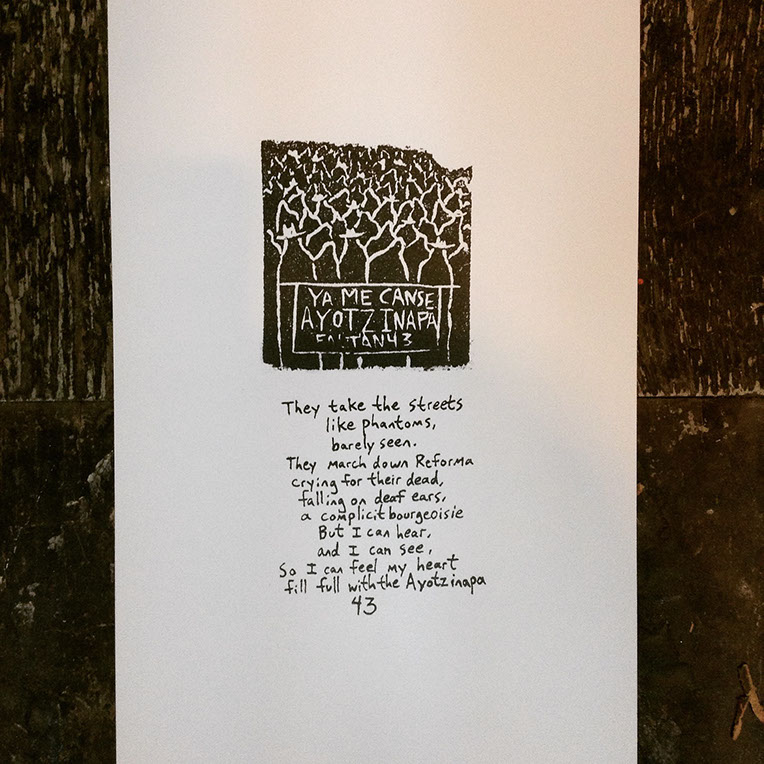 YA ME CANSE
AYOTZINAPA
FALTAN 43
They take the streets
like phantoms,
barely seen.
They march down Reforma
crying for their dead,
falling on deaf ears,
a complicit bourgeoisie
But I can hear,
and I can see,
So I can feel my heart
fill full with the Ayotzinapa
43